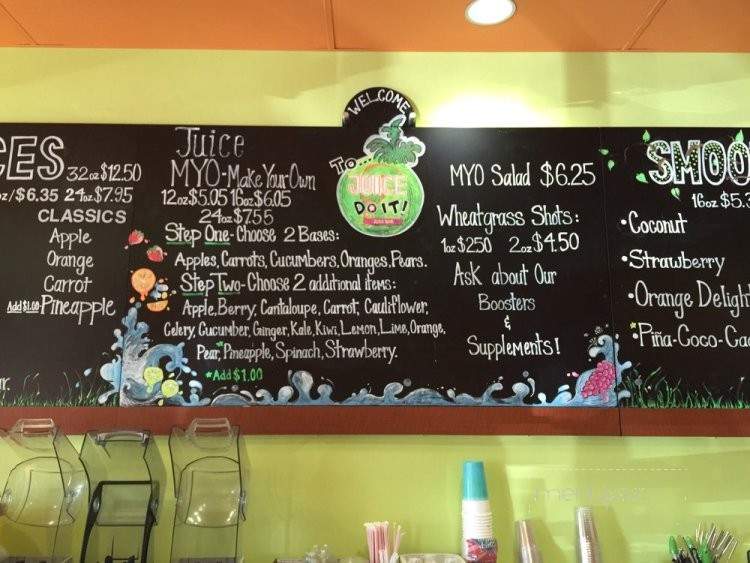 CES 32oz $12.50
oz/$6.35 24oz $7.95
CLASSICS
Apple
Orange
Carrot
Add $1.00 Pineapple
Juice
MYO-Make Your Own
12oz $5.05 16oz $6.05
24oz $7.55
Step One-Choose 2 Bases:
Apples, Carrots, Cucumbers, Oranges, Pears.
Step Two-Choose 2 additional items:
Apple, Berry, Cantaloupe, Carrot, Cauliflower,
Celery, Cucumber, Ginger, Kale, Kiwi, Lemon, Lime, Orange,
Pear, *Pineapple, Spinach, Strawberry.
*Add $1.00
WELCOME
TO...
JUICE
DO IT!
MYO Salad $6.25
Wheatgrass Shots:
1oz $2.50 2oz $4.50
Ask about Our
Boosters
&
Supplements!
SMOO
16oz $5.3
•Coconut
•Strawberry
•Orange Delight
*Piña-Coco-Ca